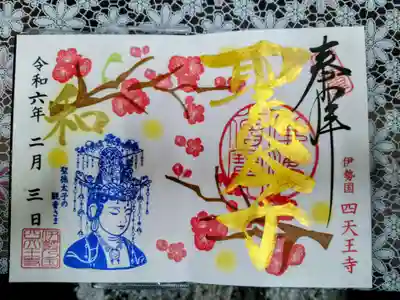 奉拝
聖徳太子
和
伊勢国 四天王寺
令和六年 二月 三日
聖徳太子の
観音さま